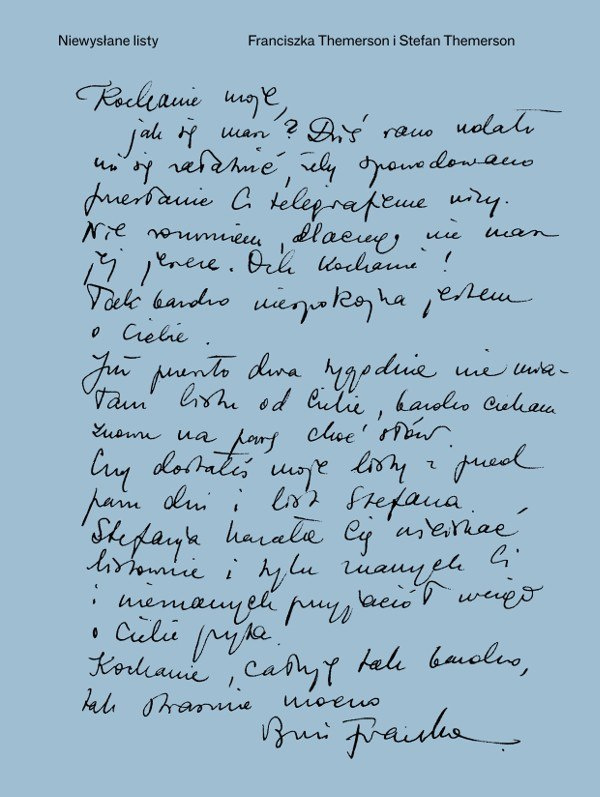 Niewysłane listy
Franciszka Themerson i Stefan Themerson
Kochanie moje,
jak się masz? Dziś rano udało
mi się załatwić, żeby spowodowano
przesłanie Ci telegraficzne wizy.
Nie rozumiem, dlaczego nie masz
jej jeszcze. Och Kochanie!
Tak bardzo niespokojna jestem
o Ciebie.
Już przeszło dwa tygodnie nie mia-
łam listu od Ciebie, bardzo czekam
znowu na parę choć słów.
Czy dostałeś moje listy z przed
paru dni i list Stefana.
Stefania kazała Cię uściskać
listownie i tylu znanych Ci
i nieznanych przyjaciół wciąż
o Ciebie pyta.
Kochanie, całuję tak bardzo,
tak strasznie mocno
Franka.